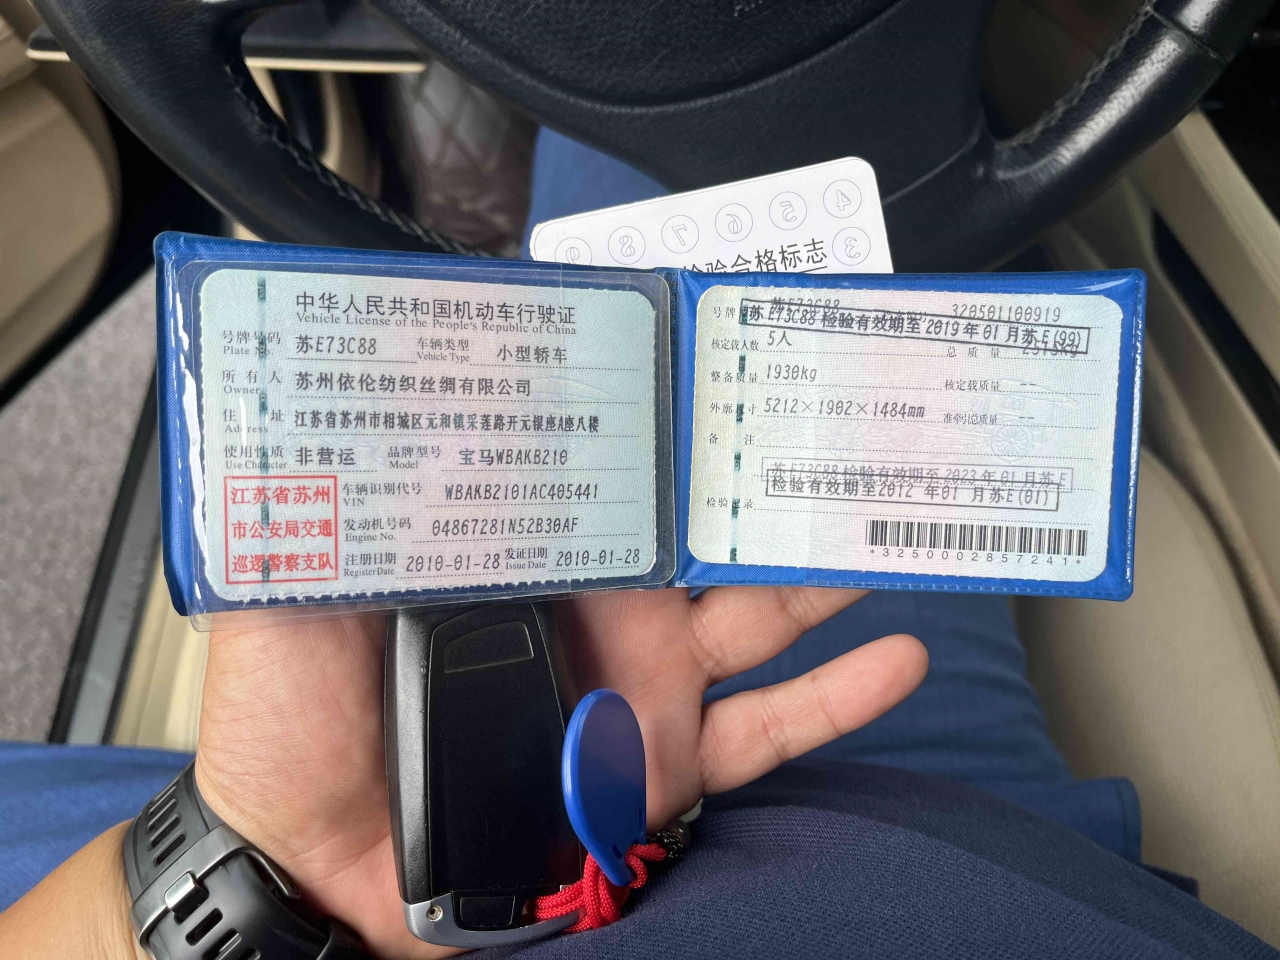 ④ ⑤ ⑥ ⑦ ⑧ ⑨
③
检验合格标志
中华人民共和国机动车行驶证
Vehicle License of the People's Republic of China
号牌号码 苏E73C88 车辆类型 小型轿车
Plate No. Vehicle Type
所有人 苏州依伦纺织丝绸有限公司
Owner
住址 江苏省苏州市相城区元和镇采莲路开元银座A座八楼
Address
使用性质 非营运 品牌型号 宝马WBAKB210
Use Character Model
江苏省苏州
市公安局交通
巡逻警察支队
车辆识别代号 WBAKB2101AC405441
VIN
发动机号码 04867281N52B30AF
Engine No.
注册日期 2010-01-28 发证日期 2010-01-28
Register Date Issue Date
号牌 苏E73C88 320501100919
苏E73C88 检验有效期至 2019 年 01 月苏E(99)
核定载人数 5人 总质量
整备质量 1930kg 核定载质量 --
外廓尺寸 5212×1902×1484mm 准牵引总质量 --
备注
苏E73C88 检验有效期至 2023 年 01 月苏E
检验有效期至2012 年01 月苏E(01)
检验记录
*3250002857241*